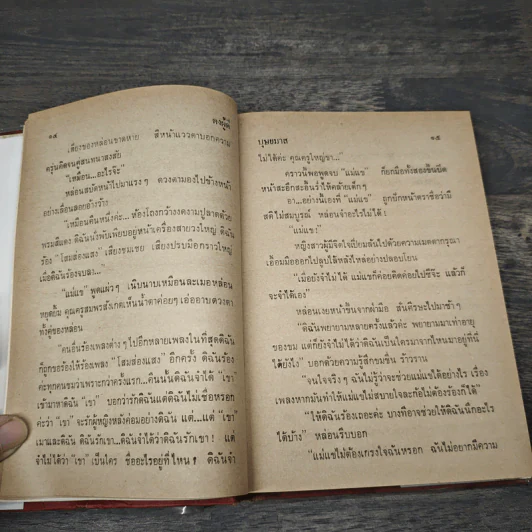 ๑๔
ดงผู้ดี
เสียงของหล่อนขาดหาย สีหน้าแววตาบอกความ
ครุ่นคิดจนคู่สนทนาสงสัย
"เหมือน...อะไรจ๊ะ"
หล่อนสบัดหน้าไปมาแรงๆ ดวงตามองไปข้างหน้า
อย่างเลื่อนลอยอ้างว้าง
"เหมือนคืนหนึ่งค่ะ... ห้องโถงกว้างงดงามปูลาดด้วย
พรมสีแดง ดิฉันนั่งพับเพียบอยู่หน้าเครื่องสายวงใหญ่ ดิฉัน
ร้อง "โสมส่องแสง" เสียงชมเชย เสียงปรบมือกราวใหญ่
เมื่อดิฉันร้องจบลง..."
"แม่แข" พูดแผ่วๆ เนิบนาบเหมือนละเมอ หล่อน
หยุดยิ้ม คุณครูสมพรสังเกตเห็นน้ำตาค่อยๆ เอ่ออาบดวงตา
ทั้งคู่ของหล่อน
"คนอื่นร้องเพลงต่างๆ ไปอีกหลายเพลงในที่สุดดิฉัน
ก็ถูกขอร้องให้ร้องเพลง "โสมส่องแสง" อีกครั้ง ดิฉันร้อง
ค่ะทุกคนชมว่าเพราะกว่าครั้งแรก...คืนนั้นดิฉันจำได้ "เขา"
เข้ามาหาดิฉัน "เขา" บอกว่ารักดิฉัน แต่ดิฉันไม่เชื่อหรอก
ค่ะว่า "เขา" จะรักผู้หญิงหลังค่อมอย่างดิฉัน แต่...แต่ "เขา"
เมาและดิฉัน ดิฉันรักเขา...ดิฉันจำได้ว่าดิฉันรักเขา! แต่
จำไม่ได้ว่า "เขา" เป็นใคร ชื่ออะไรอยู่ที่ไหน! ดิฉันจำ
บุษยมาส
๑๕
ไม่ได้ค่ะ คุณครูใหญ่ขา..."
คราวนี้พอพูดจบ "แม่แข" ก็ยกมือทั้งสองขึ้นปิด
หน้าสะอึกสะอื้นร่ำไห้คล้ายเด็กๆ
อา...อย่างนี้เองที่ "แม่แข" ถูกบีกหน้าตราชื่อว่ามี
สติไม่สมบูรณ์ หล่อนจำอะไรไม่ได้!
"แม่แข!"
หญิงสาวผู้มีจิตใจเปี่ยมล้นไปด้วยความเมตตากรุณา
เอื้อมมือออกไปลูบไล้หลังไหล่อย่างปลอบโยน
"เมื่อยังจำไม่ได้ แม่แขก็ค่อยคิดค่อยไปซีจ๊ะ แล้วก็
จะจำได้เอง"
หล่อนเงยหน้าขึ้นจากฝ่ามือ สั่นศีรษะไปมาช้าๆ
"ดิฉันพยายามหลายครั้งแล้วค่ะ พยายามมาเท่าอายุ
ของชม แต่ก็ยังจำไม่ได้ว่าดิฉันเป็นใครมาจากไหนมาอยู่ที่นี่
ได้ยังไง" บอกด้วยความรู้สึกขมขื่น ร้าวราน
"จนใจจริงๆ ฉันไม่รู้ว่าจะช่วยแม่แขได้อย่างไร เรื่อง
เพลงหากมันทำให้แม่แขไม่สบายใจละก้อไม่ต้องร้องก็ได้"
"ให้ดิฉันร้องเถอะค่ะ บางทีอาจช่วยให้ดิฉันนึกอะไร
ได้บ้าง" หล่อนรีบบอก
"แม่แขไม่ต้องเกรงใจฉันหรอก ฉันไม่อยากมีความ